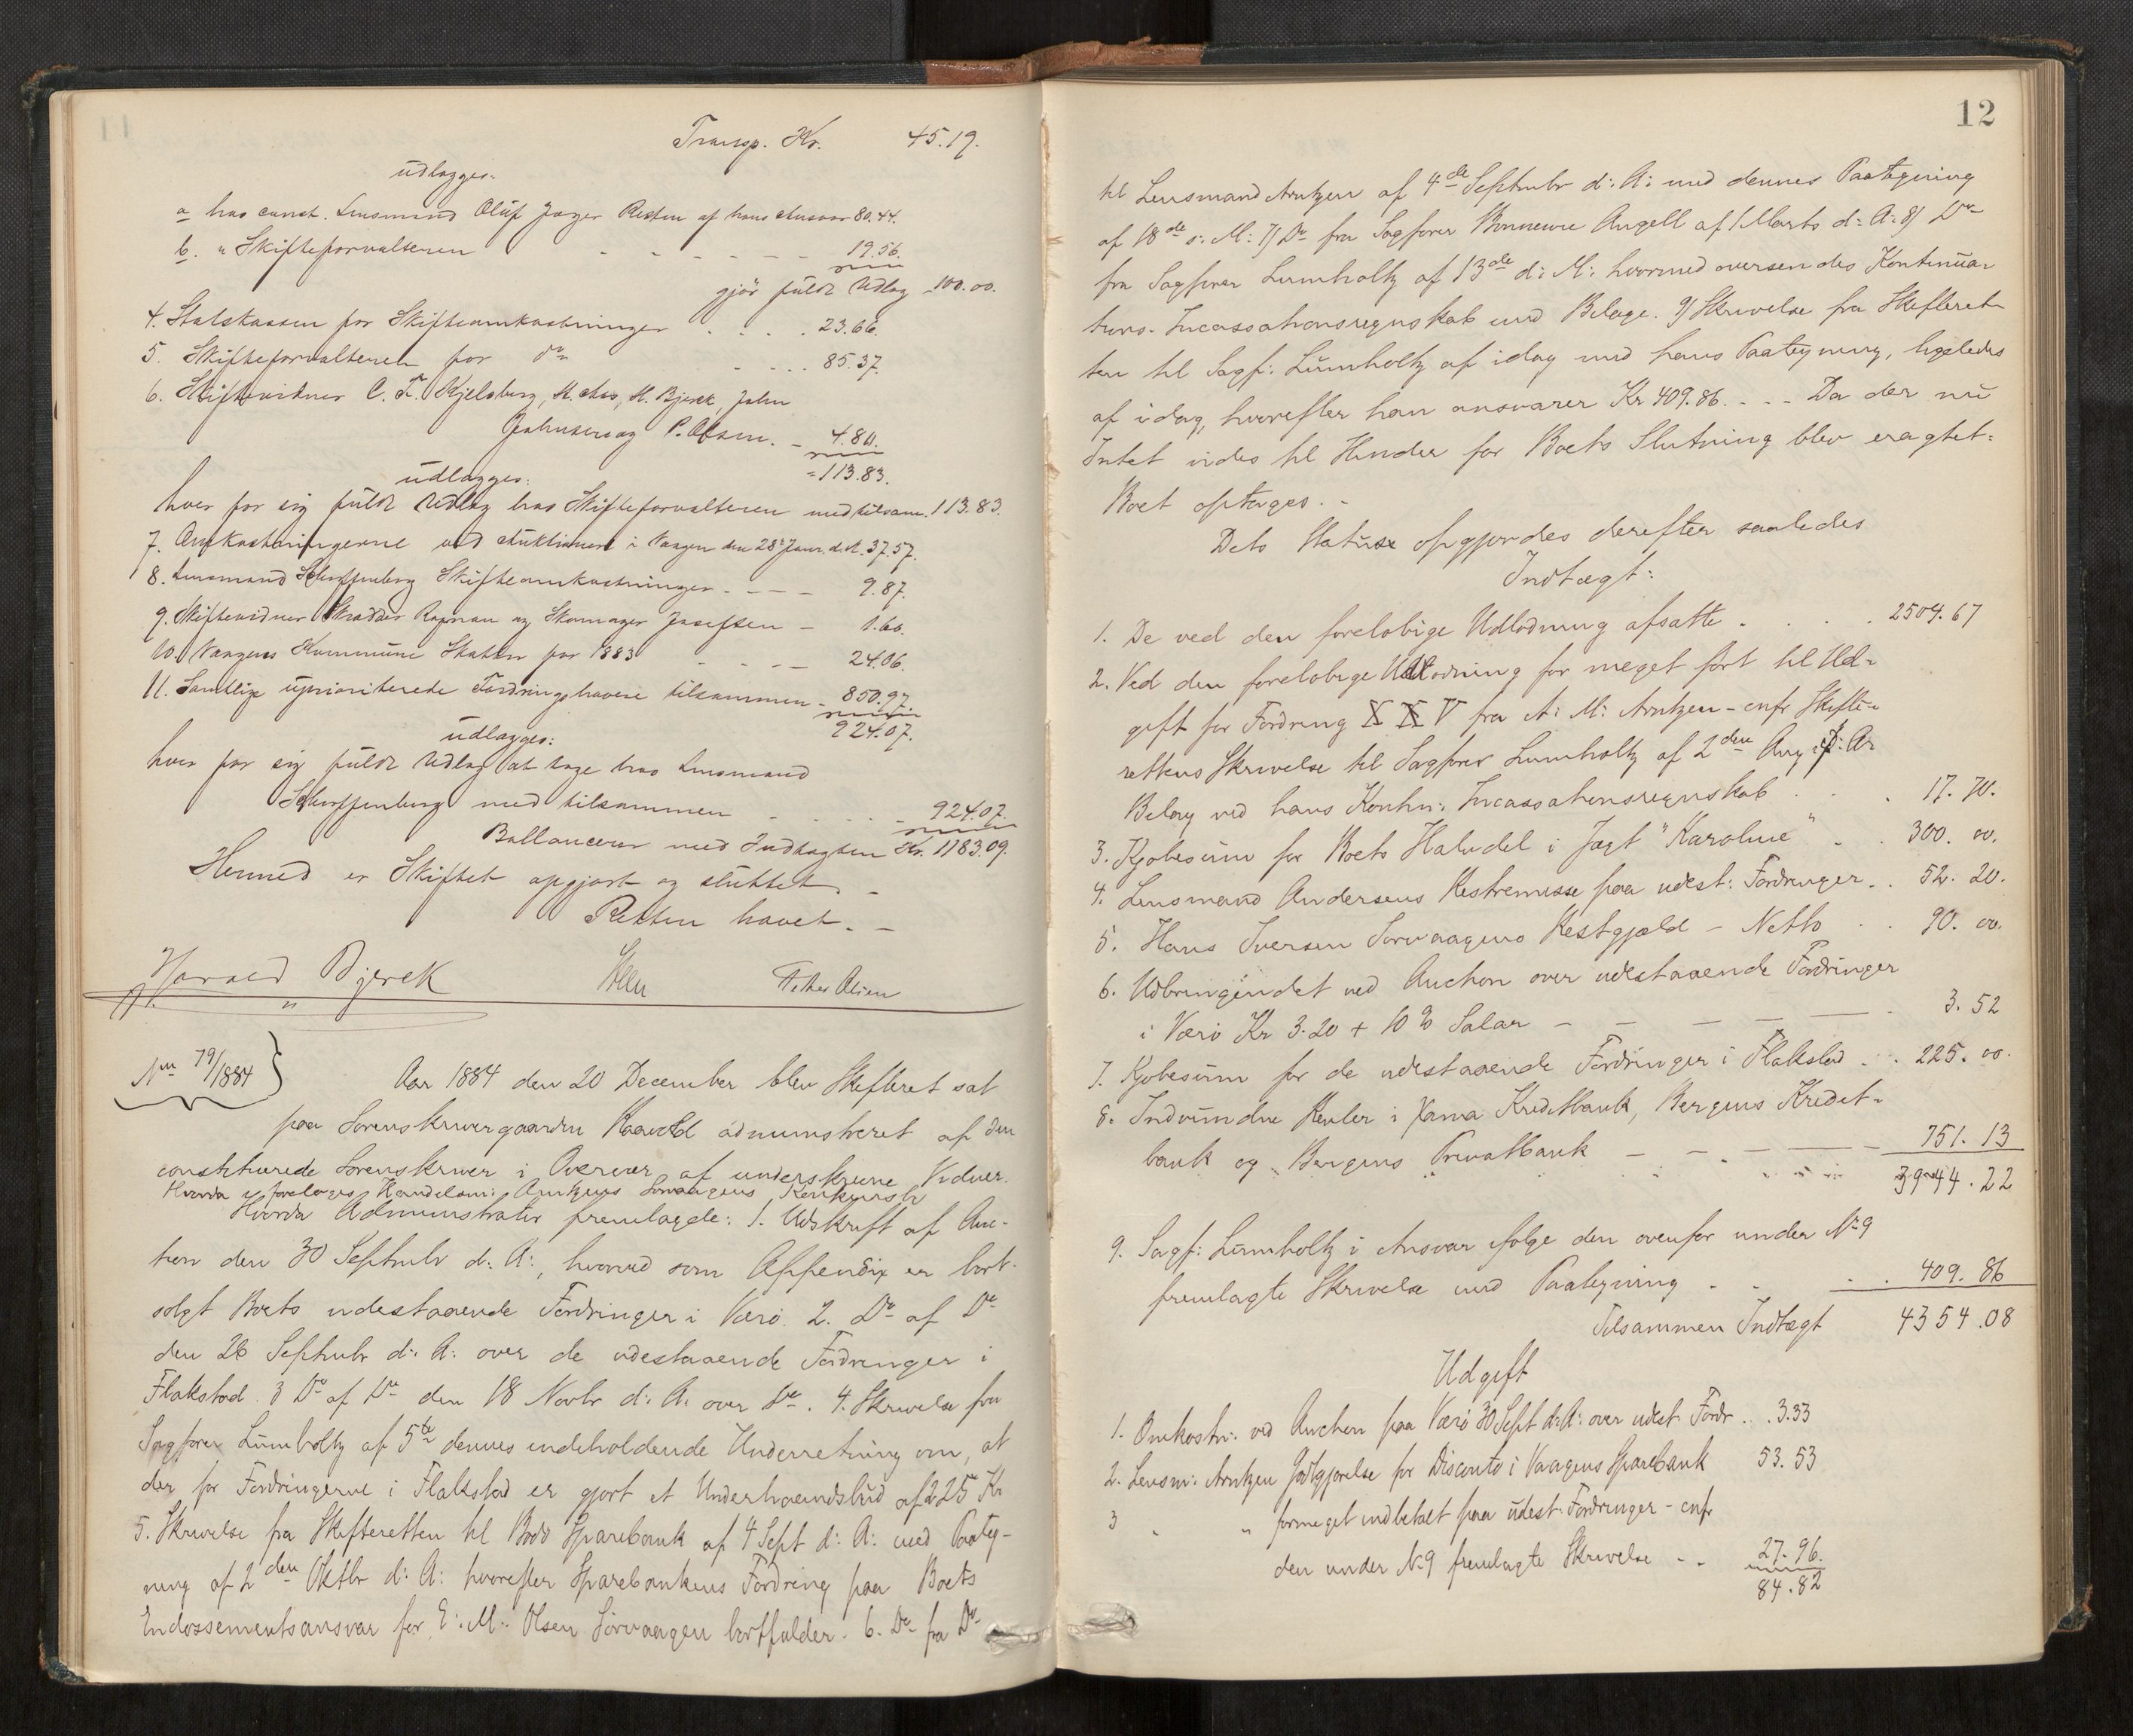 Transp. Kr. 45.19.
udlægges.
a hos const. Lensmand Oluf Jæger Resten af hans Ansvar 80.44.
b. " Skifteforvalteren - - - - - - 19.56.
gjør fuldt Udlæg - 100.00.
4. Statskassen for Skifteomkostninger . . . . 23.66.
5. Skifteforvalteren for do - . . . . 85.37.
6. Skiftevidner C. F. Kjelsberg, M. Aas, H. Bjerck, John
Johnsen og P. Olsen. - 4.80.
= 113.83.
udlægges:
hver for sig fuldt Udlæg hos Skifteforvalteren med tilsam. 113.83.
7. Omkostningerne ved Auktionen i Vaagen den 28de Janr. d. A. 37.57.
8. Lensmand Scharffenberg Skifteomkostninger - - - - 9.87.
9. Skiftevidner Skrædder and Skomager Josefsen - 1.60.
10. Vaagens Kommune Skatter for 1883 - - - - 24.06.
11. Samtlige uprioriterede Fordringshavere tilsammen - 850.97.
924.07.
udlægges:
hver for sig fuldt Udlæg at tage hos Lensmand
Scharffenberg med tilsammen - . . . . - 924.07.
Ballancerer med Indtægten Kr. 1183.09.
Hermed er Skiftet opgjort og sluttet. -
Retten hævet. -
Harald Bjerck Peter Olsen
No 79/1884 } Aar 1884 den 20 December blev Skifteret sat
paa Sorenskrivergaarden administreret af den
constituerede Sorenskriver i Overvær af underskrevne Vidner.
Hvorda foretoges Handelsm: Arntzens Sørvaagens Konkursbo
Hvorda Administrator fremlagde: 1. Udskrift af Auc-
tion den 30 Septembr d: A:, hvorved som Appendix er bort-
solgt Boets udestaaende Fordringer i Værø. 2. Do af Do
den 26 Septembr d: A: over de udestaaende Fordringer i
Flakstad 3 Do af Do den 18 Novbr d: A: over Do. 4. Skrivelse fra
Sagfører Lumholtz af 5te dennes indeholdende Underretning om, at
der for Fordringerne i Flakstad er gjort et Underhaandsbud af 225 Kr
5. Skrivelse fra Skifteretten til Bodø Sparebank af 4 Sept d: A: med Paateg-
ning af 2den Oktbr d: A: hvorefter Sparebankens Fordring paa Boets
Endossementsansvar for E: M: Olsen Sørvaagen bortfalder. 6. Do fra Do
12
til Lensmand Arntzen af 4de Septembr d: A: med dennes Paategning
af 18de s: M: 7/ Do fra Sagfører Bonnevie Angell af 1 Marts d: A: 8/ Do
fra Sagfører Lumholtz af 13de d: M: hvormed oversendes Kontinua-
tions-Incassationsregnskab med Bilage. 9/ Skrivelse fra Skifteret-
ten til Sagf: Lumholtz af idag med hans Paategning, ligeledes
af idag, hvorefter han ansvarer Kr 409.86. - - - Da der nu
Intet vides til Hinder for Boets Slutning blev eragtet:
Boet optages. -
Dets Status opgjordes derefter saaledes
Indtægt:
1. De ved den foreløbige Udlodning afsatte . . . . 2504.67
2. Ved den foreløbige Udlodning for meget ført til Ud-
gift for Fordring X X V fra A: M: Arntzen - cnfr Skifte-
rettens Skrivelse til Sagfører Lumholtz af 2den Aug: d: A:
Bilag ved hans Kontin: Incassationsregnskab . . . 17.70.
3. Kjøbesum for Boets Halvdel i Jagt "Karoline" - . 300.00.
4. Lensmand Andersens Restremisse paa udest: Fordringer . . 52.20.
5. Hans Iversen Sørvaagens Restgjæld - Netto . . 90.00.
6. Udbringendet ved Auction over udestaaende Fordringer
i Værø Kr 3.20 + 10 % Salær - - - - - 3.52
7. Kjøbesum for de udestaaende Fordringer i Flakstad . . 225.00.
8. Indvundne Renter i Vana Kreditbank, Bergens Kredit-
bank og Bergens Privatbank - - - - - 751.13
3944.22
9. Sagf: Lumholtz i Ansvar ifølge den ovenfor under No 9
fremlagte Skrivelse med Paategning - - . . 409.86
Tilsammen Indtægt 4354.08
Udgift
1. Omkostn: ved Auction paa Værø 30 Sept d: A: over udest: Fordr . . 3.33
2. Lensm: Arntzen Godtgjørelse for Disconto i Vaagens Sparebank 53.53
3 " " formeget indbetalt paa udest: Fordringer - cnfr
den under No 9 fremlagte Skrivelse - - 27.96.
84.82